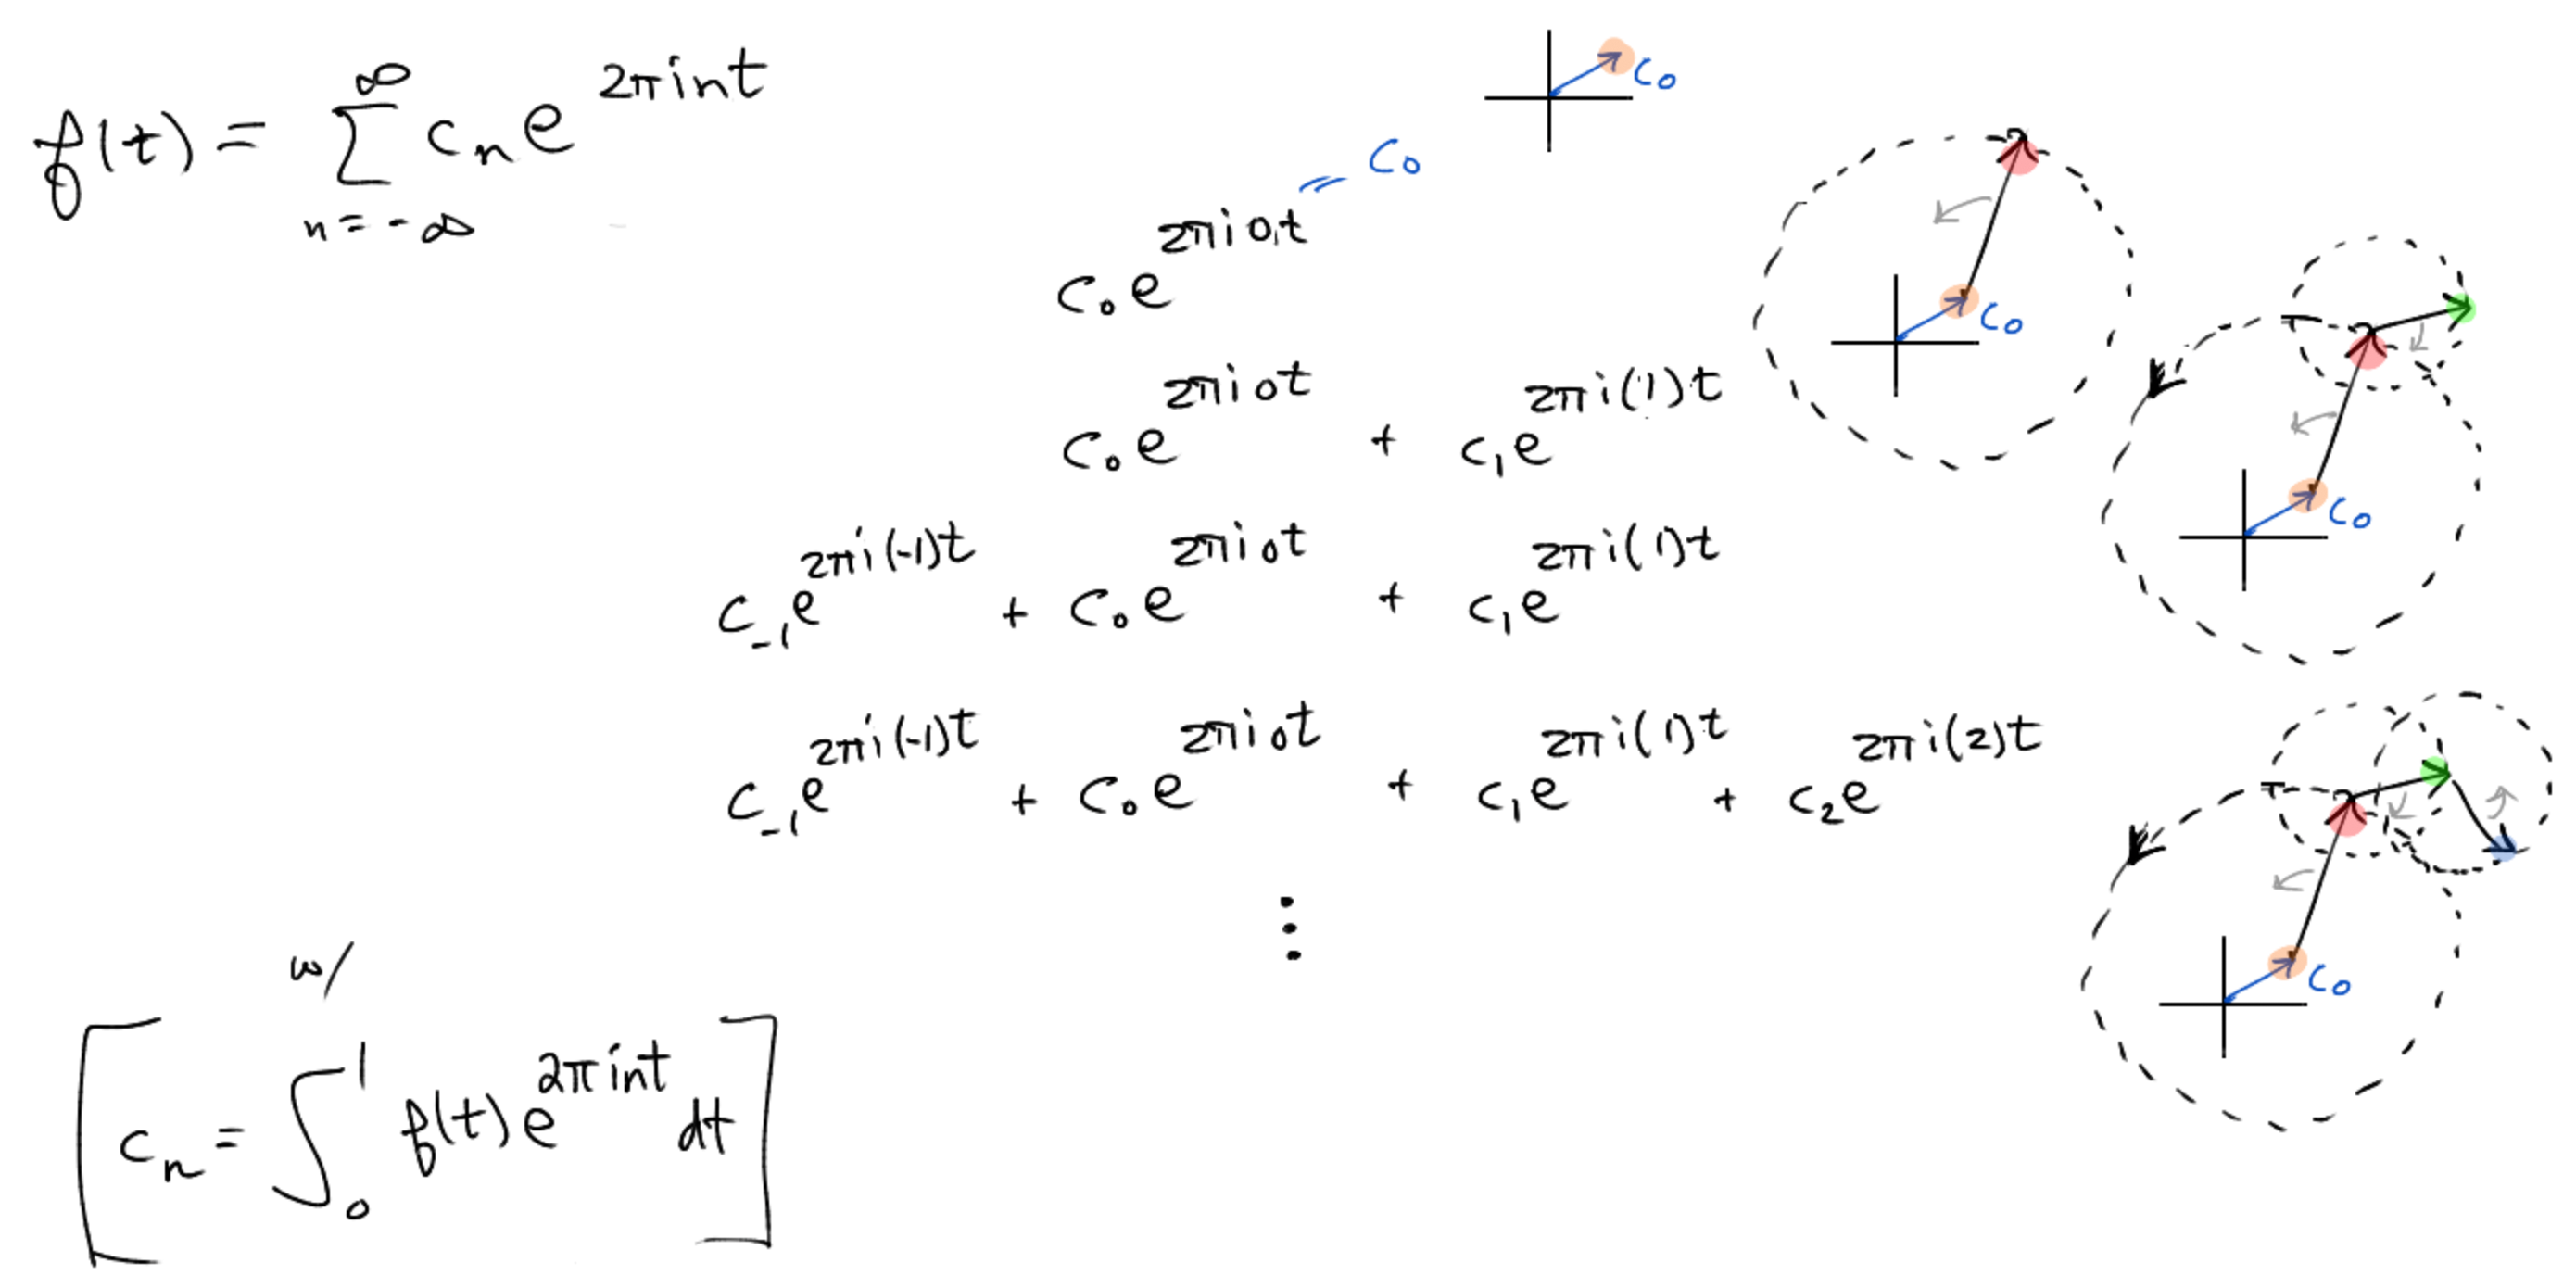 f(t) = ∑_{n=-∞}^{∞} c_n e^{2πint}
c_0
= c_0
c_0 e^{2πi0t}
c_0
c_0 e^{2πi0t} + c_1 e^{2πi(1)t}
c_0
c_{-1} e^{2πi(-1)t} + c_0 e^{2πi0t} + c_1 e^{2πi(1)t}
c_{-1} e^{2πi(-1)t} + c_0 e^{2πi0t} + c_1 e^{2πi(1)t} + c_2 e^{2πi(2)t}
⋮
c_0
w/
[c_n = ∫_0^1 f(t) e^{2πint} dt]